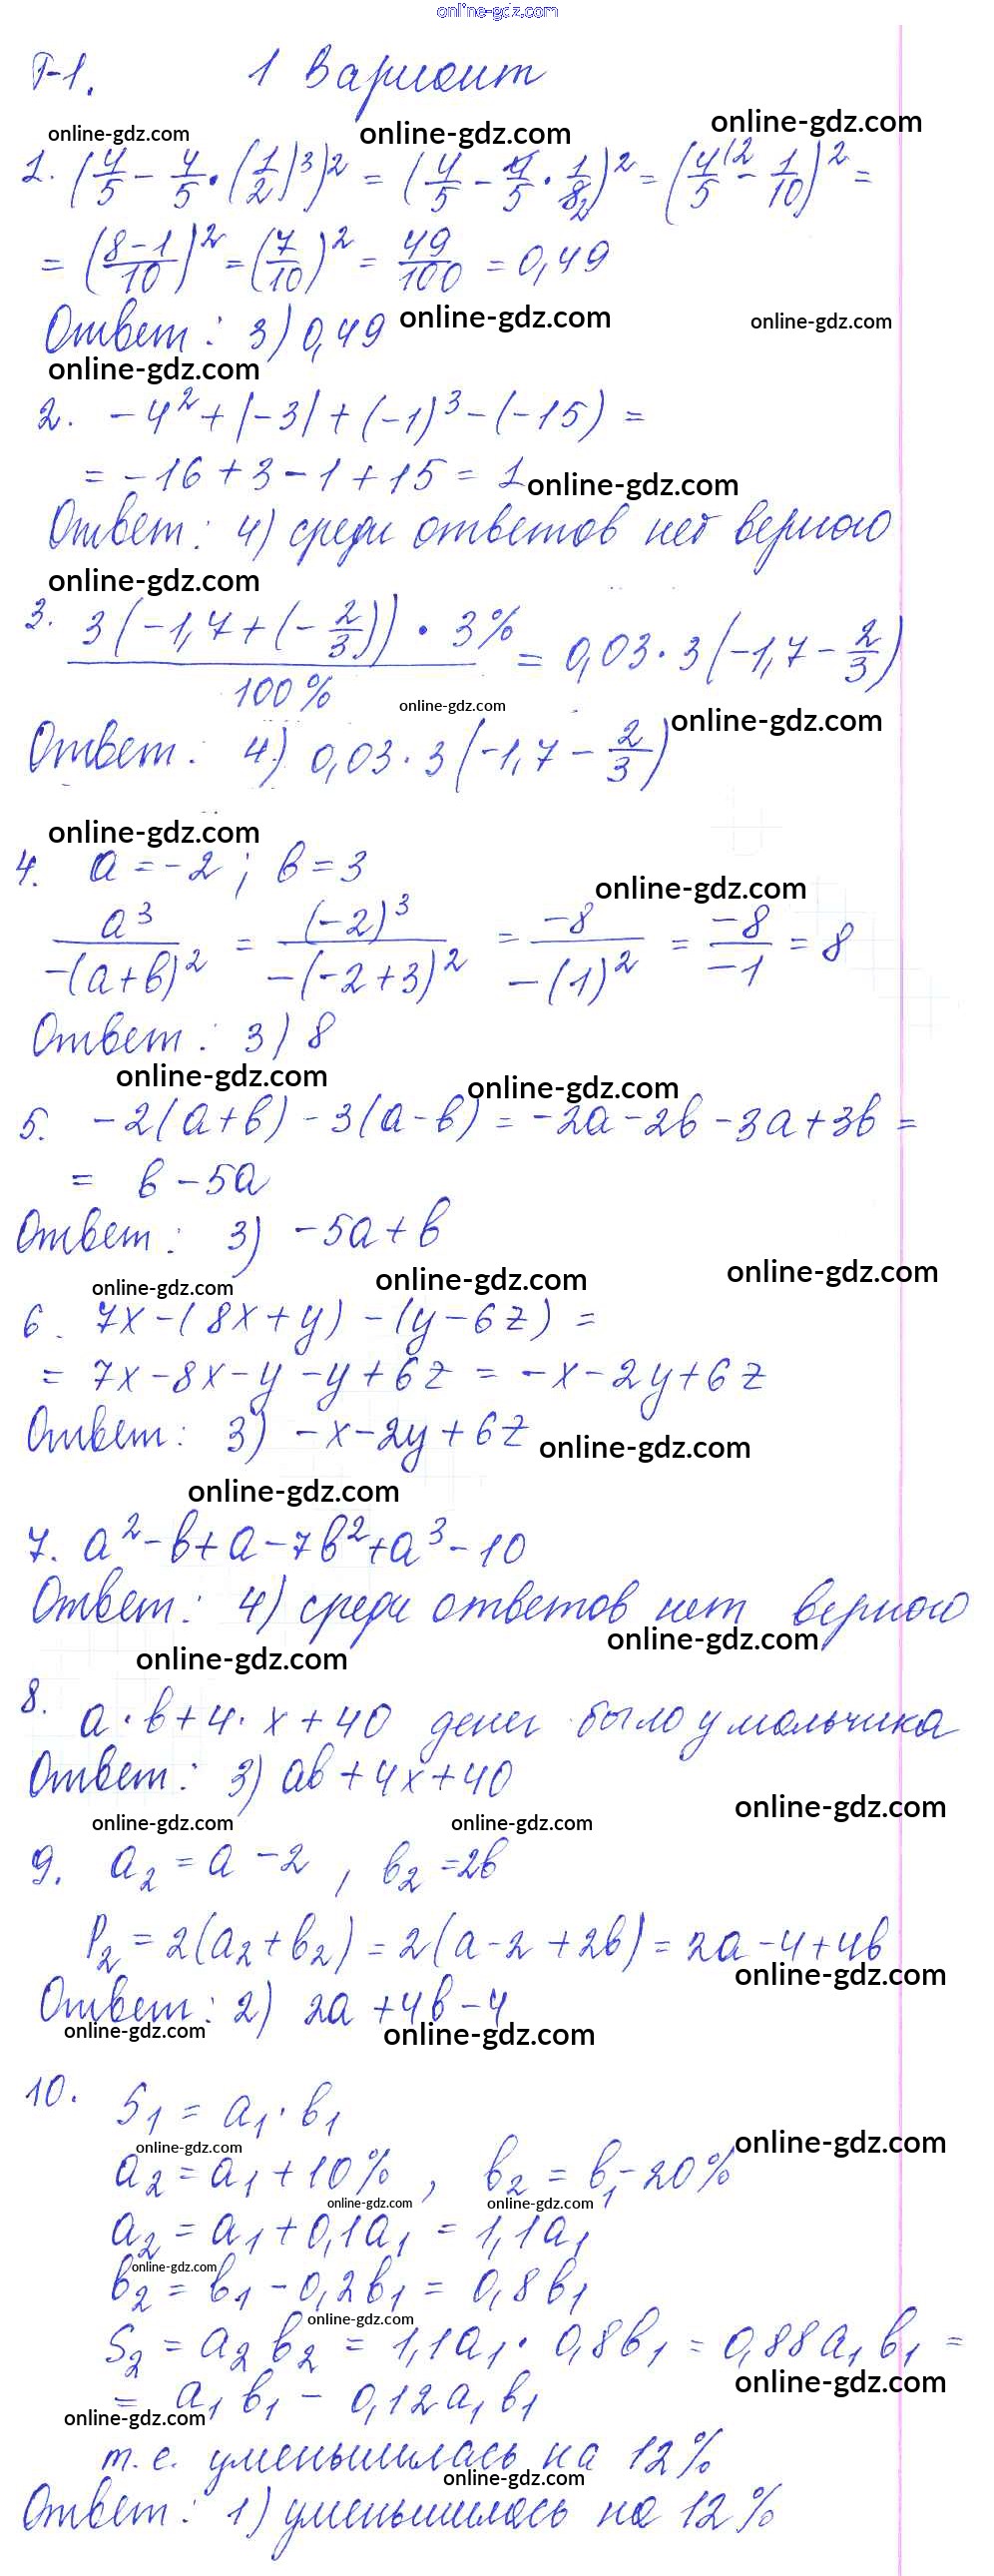 online-gdz.com
Т-1. 1 Вариант
online-gdz.com online-gdz.com online-gdz.com
1. (4/5 - 4/5 · (1/2)³)² = (4/5 - 4/5 · 1/8₂)² = (4/5^(2 - 1/10)² =
= ((8-1)/10)² = (7/10)² = 49/100 = 0,49
Ответ: 3) 0,49 online-gdz.com online-gdz.com
online-gdz.com
2. -4² + |-3| + (-1)³ - (-15) =
= -16 + 3 - 1 + 15 = 1 online-gdz.com
Ответ: 4) среди ответов нет верного
online-gdz.com
3. 3(-1,7 + (-2/3)) · 3% / 100% = 0,03 · 3(-1,7 - 2/3)
online-gdz.com
Ответ: 4) 0,03 · 3(-1,7 - 2/3) online-gdz.com
online-gdz.com
4. a = -2 ; b = 3
online-gdz.com
a³/-(a+b)² = (-2)³/-(-2+3)² = -8/-(1)² = -8/-1 = 8
Ответ: 3) 8
online-gdz.com online-gdz.com
5. -2(a+b) - 3(a-b) = -2a - 2b - 3a + 3b =
= b - 5a
Ответ: 3) -5a + b
online-gdz.com online-gdz.com online-gdz.com
6. 7x - (8x + y) - (y - 6z) =
= 7x - 8x - y - y + 6z = -x - 2y + 6z
Ответ: 3) -x - 2y + 6z online-gdz.com
online-gdz.com
7. a² - b + a - 7b² + a³ - 10
Ответ: 4) среди ответов нет верного
online-gdz.com
online-gdz.com
8. a · b + 4 · x + 40 денег было у мальчика
Ответ: 3) ab + 4x + 40
online-gdz.com online-gdz.com online-gdz.com
9. a₂ = a - 2 , b₂ = 2b
P₂ = 2(a₂ + b₂) = 2(a - 2 + 2b) = 2a - 4 + 4b
online-gdz.com
Ответ: 2) 2a + 4b - 4
online-gdz.com online-gdz.com
10. S₁ = a₁ · b₁
online-gdz.com online-gdz.com
a₂ = a₁ + 10% , b₂ = b₁ - 20%
online-gdz.com online-gdz.com
a₂ = a₁ + 0,1a₁ = 1,1a₁
online-gdz.com
b₂ = b₁ - 0,2b₁ = 0,8b₁
online-gdz.com
S₂ = a₂ b₂ = 1,1a₁ · 0,8b₁ = 0,88a₁ b₁ =
online-gdz.com
= a₁ b₁ - 0,12a₁b₁
online-gdz.com
т.е. уменьшилась на 12%
online-gdz.com
Ответ: 1) уменьшилась на 12%